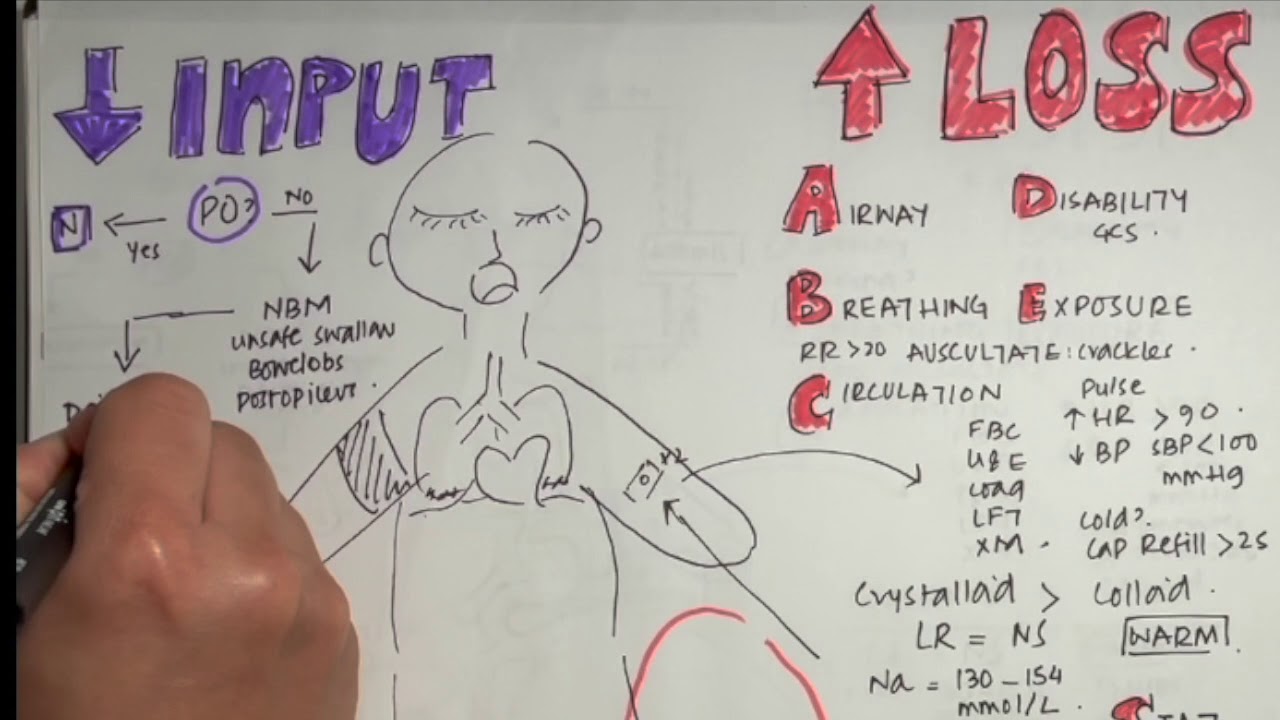 ↓ INPUT
PO?
NO
Yes
N
NBM
unsafe swallow
Bowel obs
Postopileus.
↑ LOSS
AIRWAY
DISABILITY
GCS.
BREATHING
EXPOSURE
RR >20 AUSCULTATE: crackles.
CIRCULATION
FBC
U&E
coag
LFT
XM.
Pulse
↑ HR > 90.
↓ BP SBP < 100
mmHg
cold?
cap Refill > 2s
x2
Crystalloid > colloid.
LR = NS
WARM
Na = 130 – 154
mmol/L.